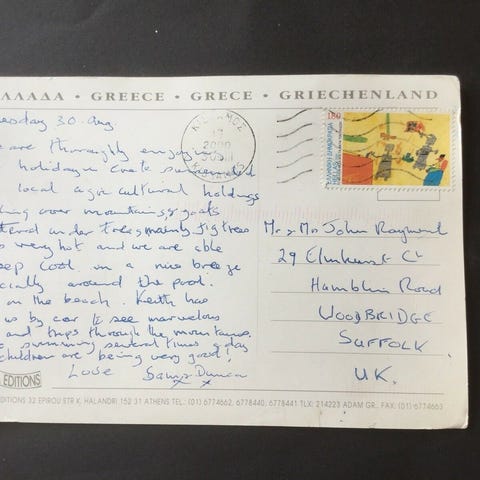 ΛΛΑΔΑ • GREECE • GRECE • GRIECHENLAND
esday 30. Aug
e are thoroughly enjoying
holiday in Crete surrounded
local agricultural holdings
over mountains, goats
tered under trees, mainly fig trees
s very hot and we are able
eep cool in a nice breeze
cially around the pool.
on the beach. Keith has
us by car to see marvelous
and trips through the mountains.
swimming several times a day
children are being very good!
Love
Duncan
x x
180
2000
Mr & Mrs John Rayment
29 Elmhurst
Road
WOODBRIDGE
SUFFOLK
U.K.
EDITIONS
EDITIONS 32 EPIROU STR K, HALANDRI 152 31 ATHENS TEL.: (01) 6774662, 6778440, 6778441 TLX: 214223 ADAM GR., FAX: (01) 6774663